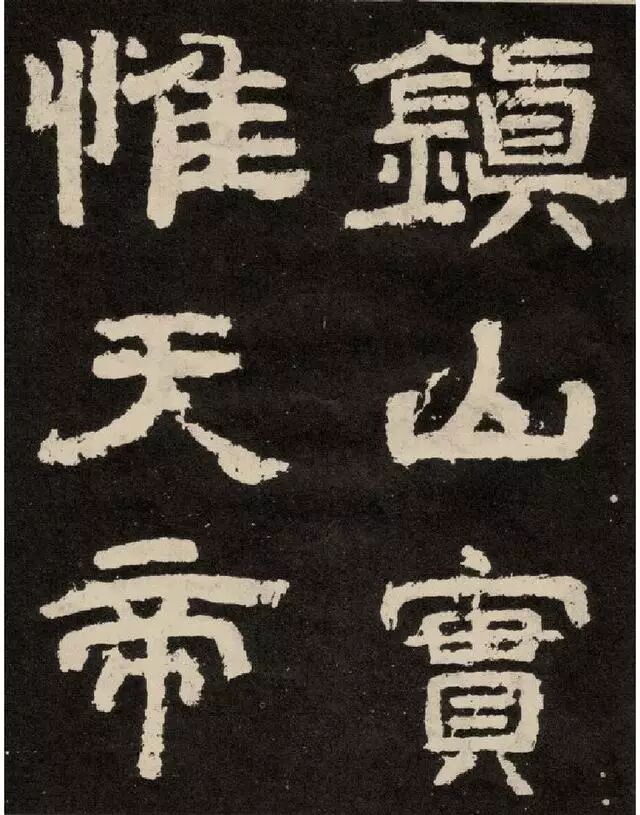 鎮山實
惟天帝